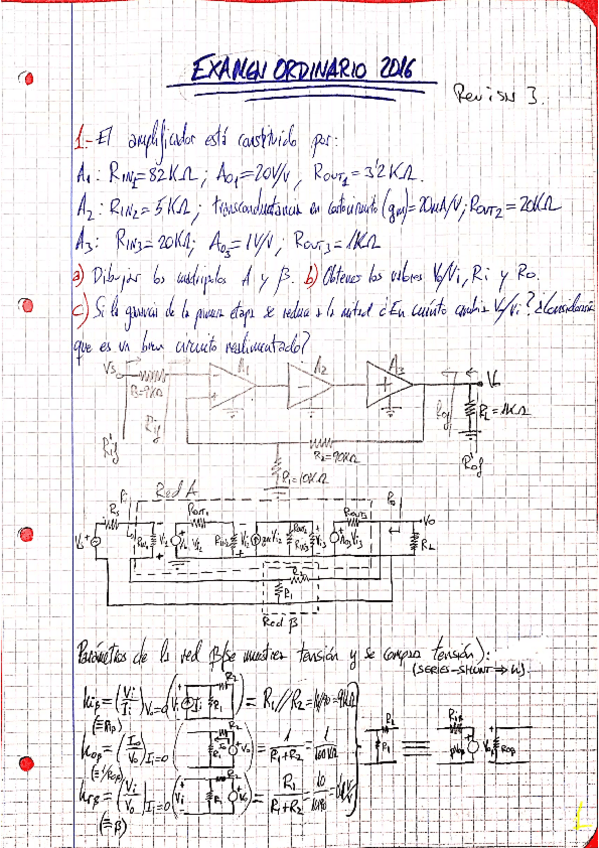 EXAMEN ORDINARIO 2016
Revisar 3.
1.- El amplificador está constituido por:
A1: RIN1=82KΩ; A01=20V/V, ROUT1=3'2KΩ.
A2: RIN2=5KΩ; transconductancia en cortocircuito (gm)=20mA/V; ROUT2=20KΩ
A3: RIN3=20KΩ; A03=1V/V; ROUT3=1KΩ
a) Dibujar los cuadripolos A y β. b) Obtener los valores Vo/Vi, Ri y Ro.
c) Si la ganancia de la primera etapa se reduce a la mitad ¿En cuánto cambia Vo/Vi?
que es un buen circuito realimentado?
Vs
A1
A2
A3
Rif
R'if
Rof
R'of
RL=1KΩ
R2=90KΩ
R1=10KΩ
Red A
ROUT1
ROUT3
Vo
RL
R2
R1
Red β
Parámetros de la red β (se muestrea tensión y se compara tensión):
(SERIES-SHUNT → H)
hiβ=(Vi/Ii)Vo=0 = R1//R2 = 10//90 = 9KΩ
(≡Riβ)
hoβ=(Io/Vo)Ii=0 = 1/(R1+R2) = 1/100KΩ
(≡1/Roβ)
hrβ=(Vi/Vo)Ii=0 = R1/(R1+R2)
(≡β)
1